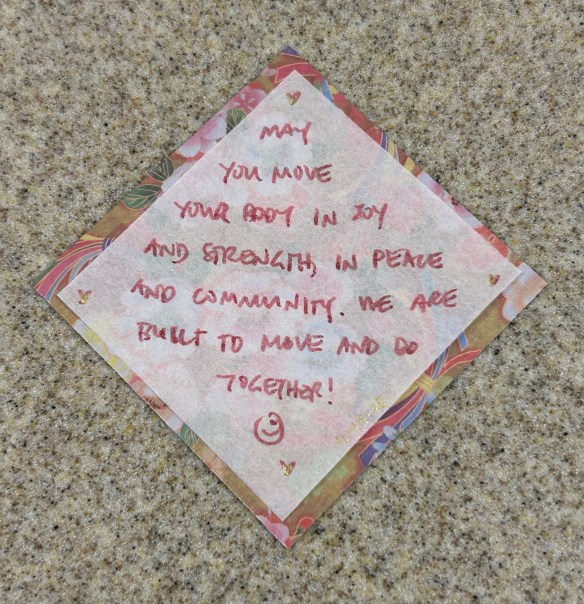 MAY
YOU MOVE
YOUR BODY IN JOY
AND STRENGTH, IN PEACE
AND COMMUNITY. WE ARE
BUILT TO MOVE AND DO
TOGETHER!